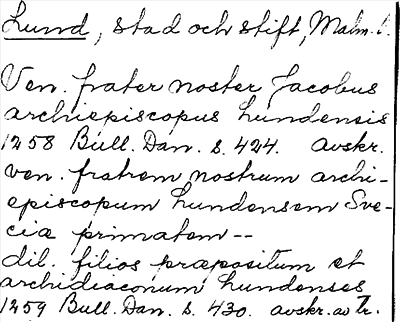 Lund, stad och stift, Malm. l.
Ven. frater noster Jacobus
archiepiscopus Lundensis
1258 Bull. Dan. s. 424. avskr.
ven. fratrem nostrum archi-
episcopum Lundensem Sve-
ciæ primatem --
dil. filios præpositum et
archidiaconum Lundenses
1259 Bull. Dan. s. 430. avskr. av Tr.